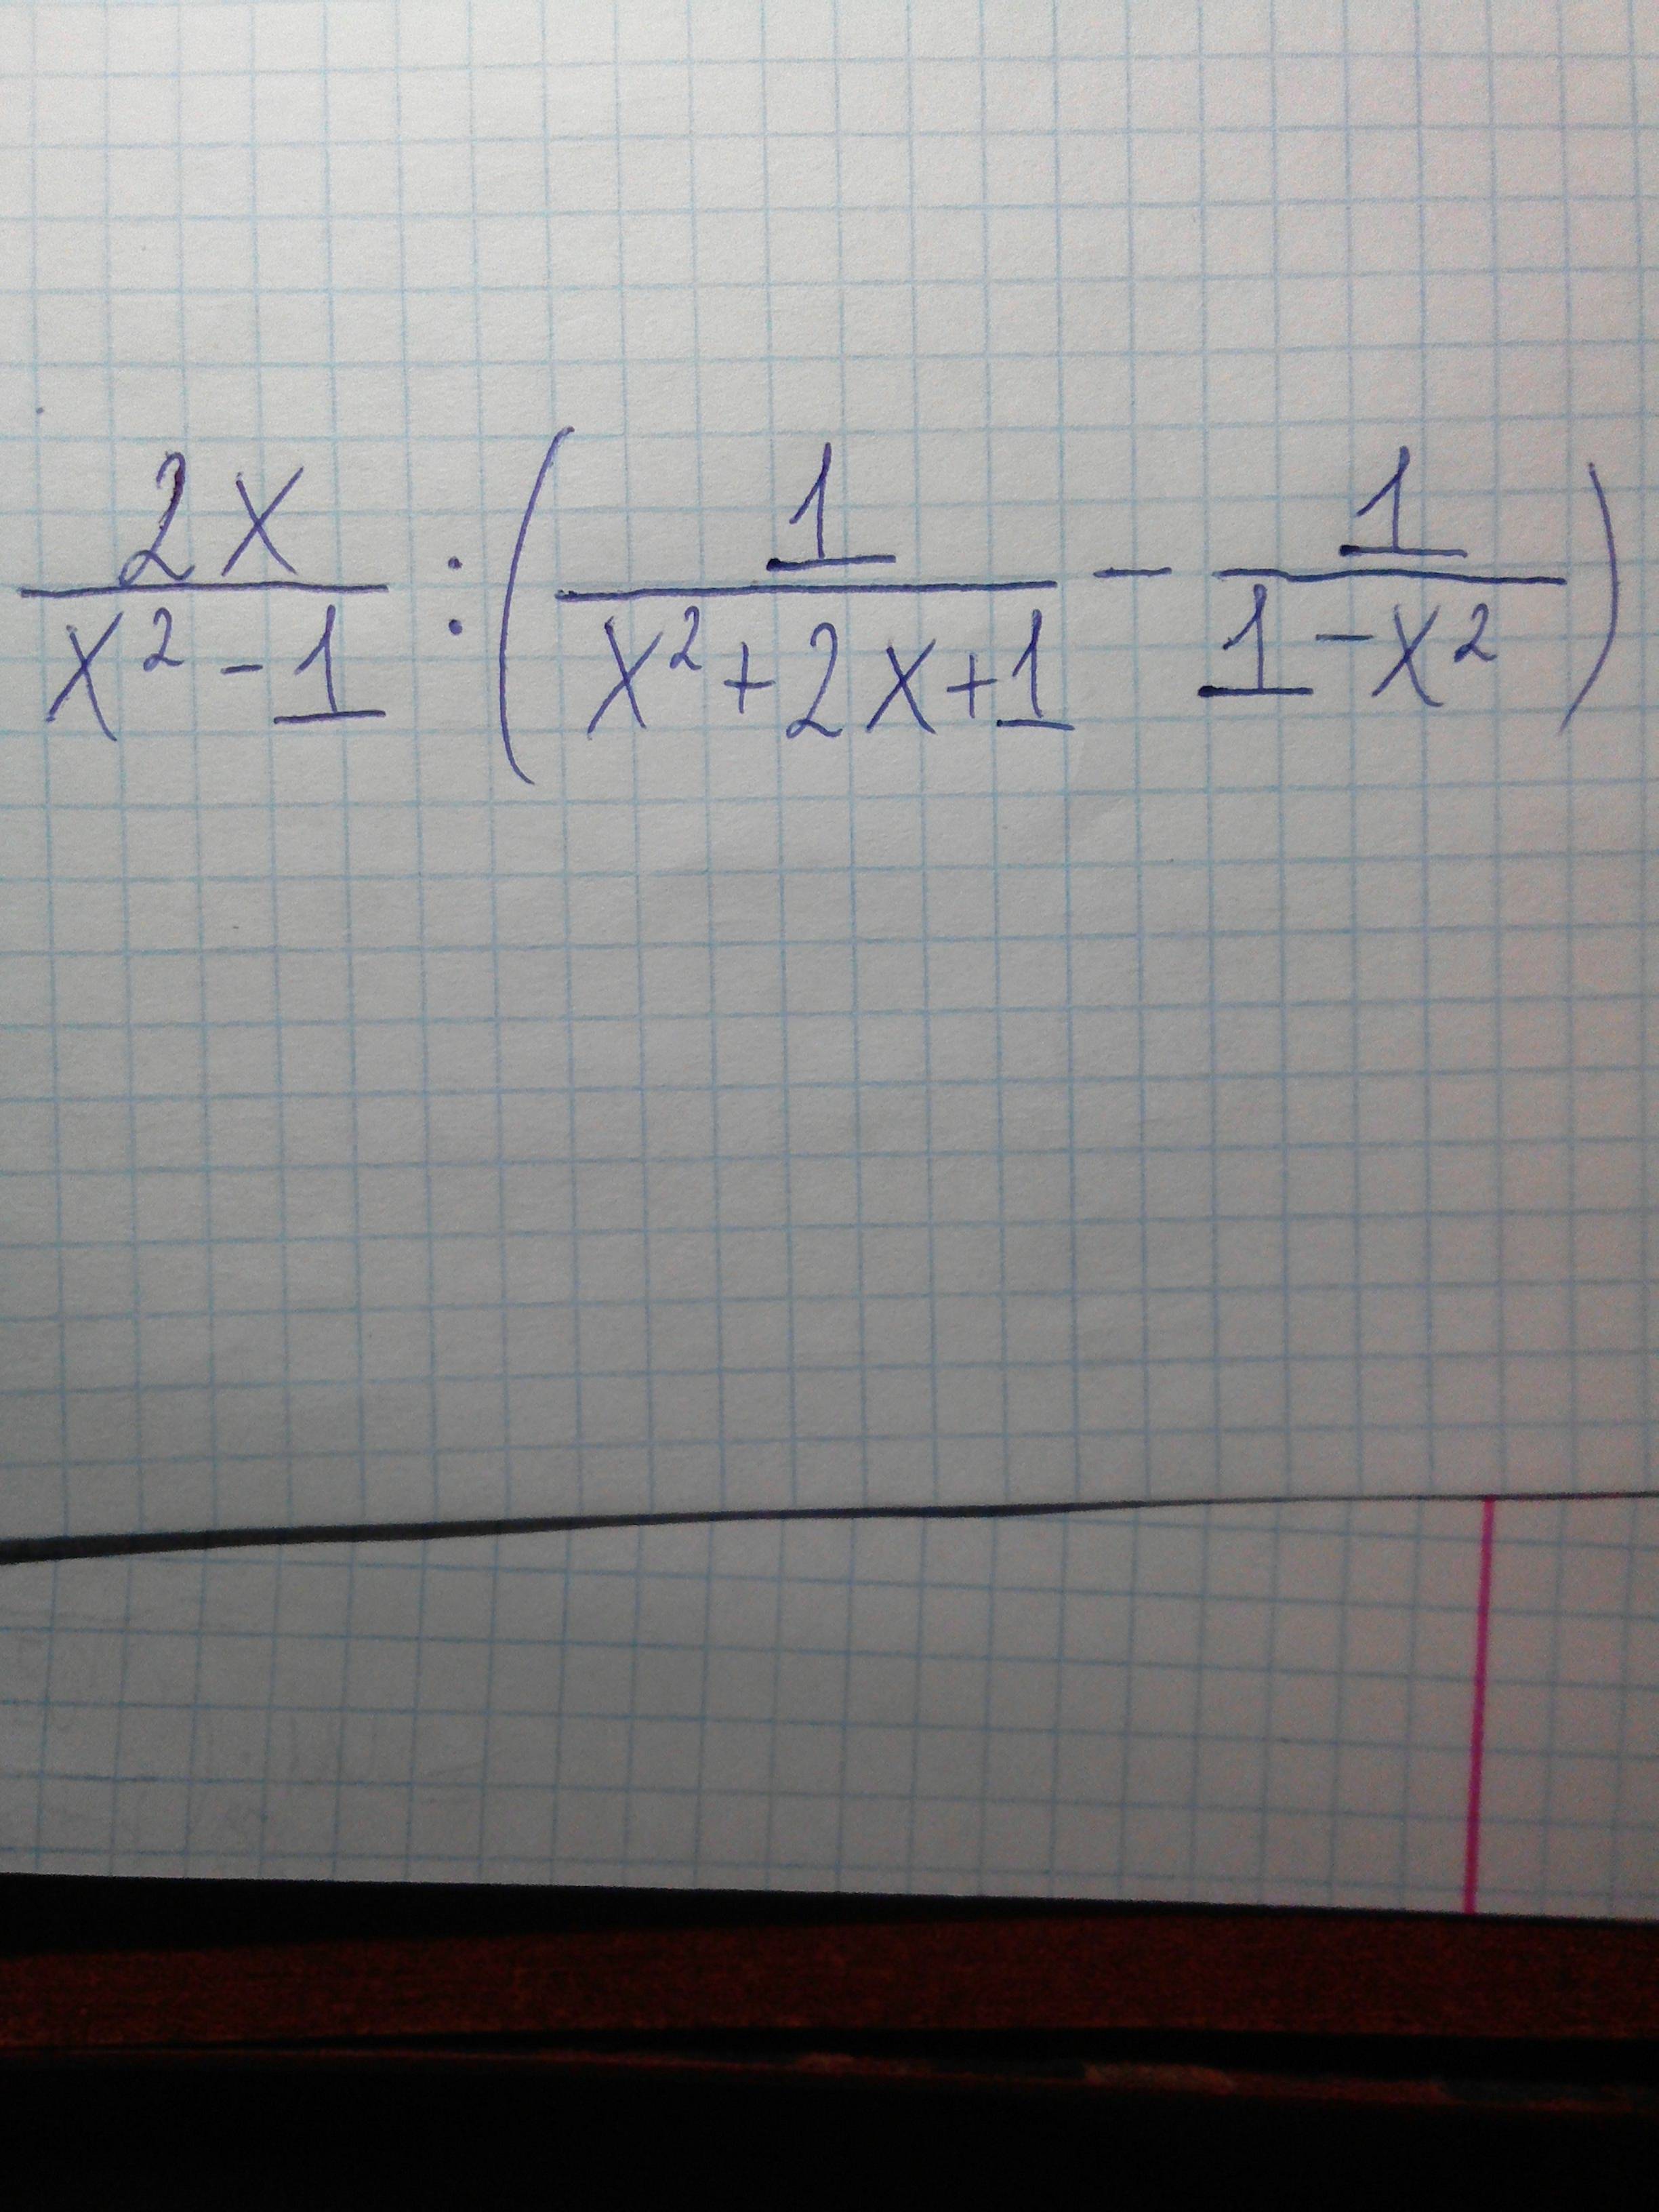 2x/(x² - 1) : (1/(x² + 2x + 1) - 1/(1 - x²))